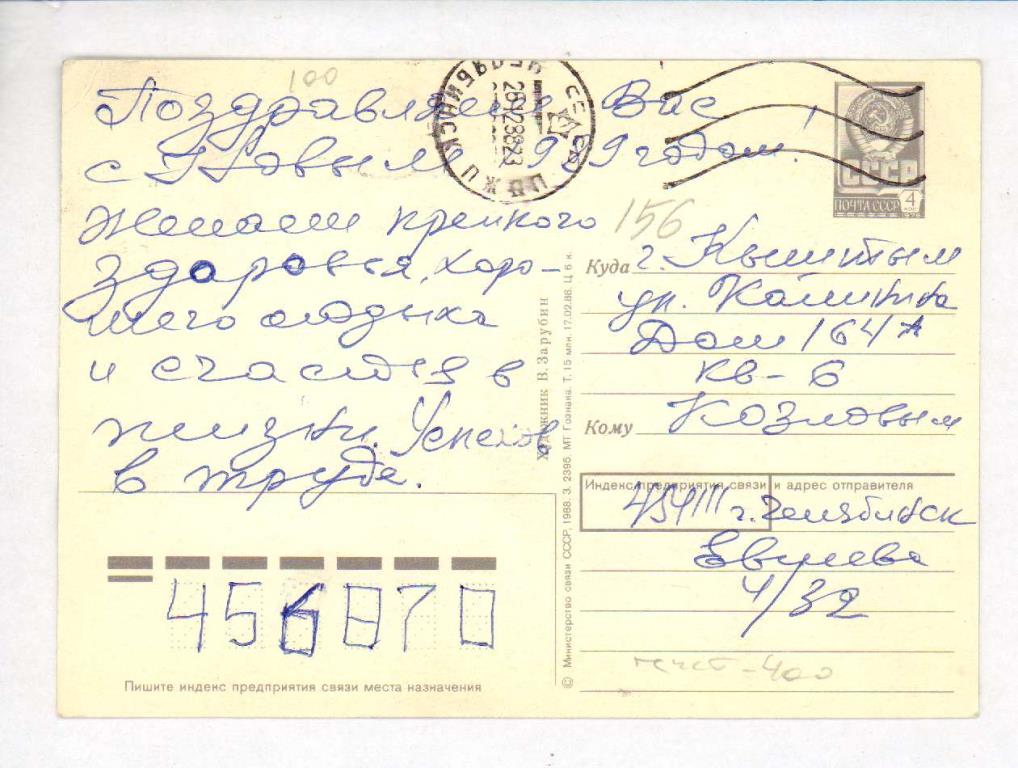 100
Поздравляем Вас
с Новым годом!
Желаем крепкого
здоровья, хоро-
шего отдыха
и счастья в
жизни. Успехов
в труде.
ЧЕЛЯБИНСК
28128823
СССР
ПОЧТА СССР
4
156
Куда г. Кыштым
ул. Калинина
Дом 164 А
кв-6
Кому Козловым
Индекс предприятия связи и адрес отправителя
454111 г. Челябинск
4/32
456870
Пишите индекс предприятия связи места назначения
© Министерство связи СССР, 1988. З. 2395. МТ Гознака. Т. 15 млн. 17.02.88. Ц. 6 к.
Художник В. Зарубин